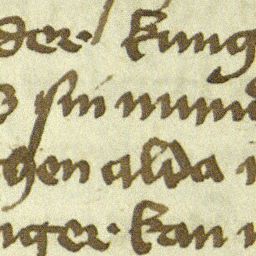 der kung
sin mund
hen alda
nger kan